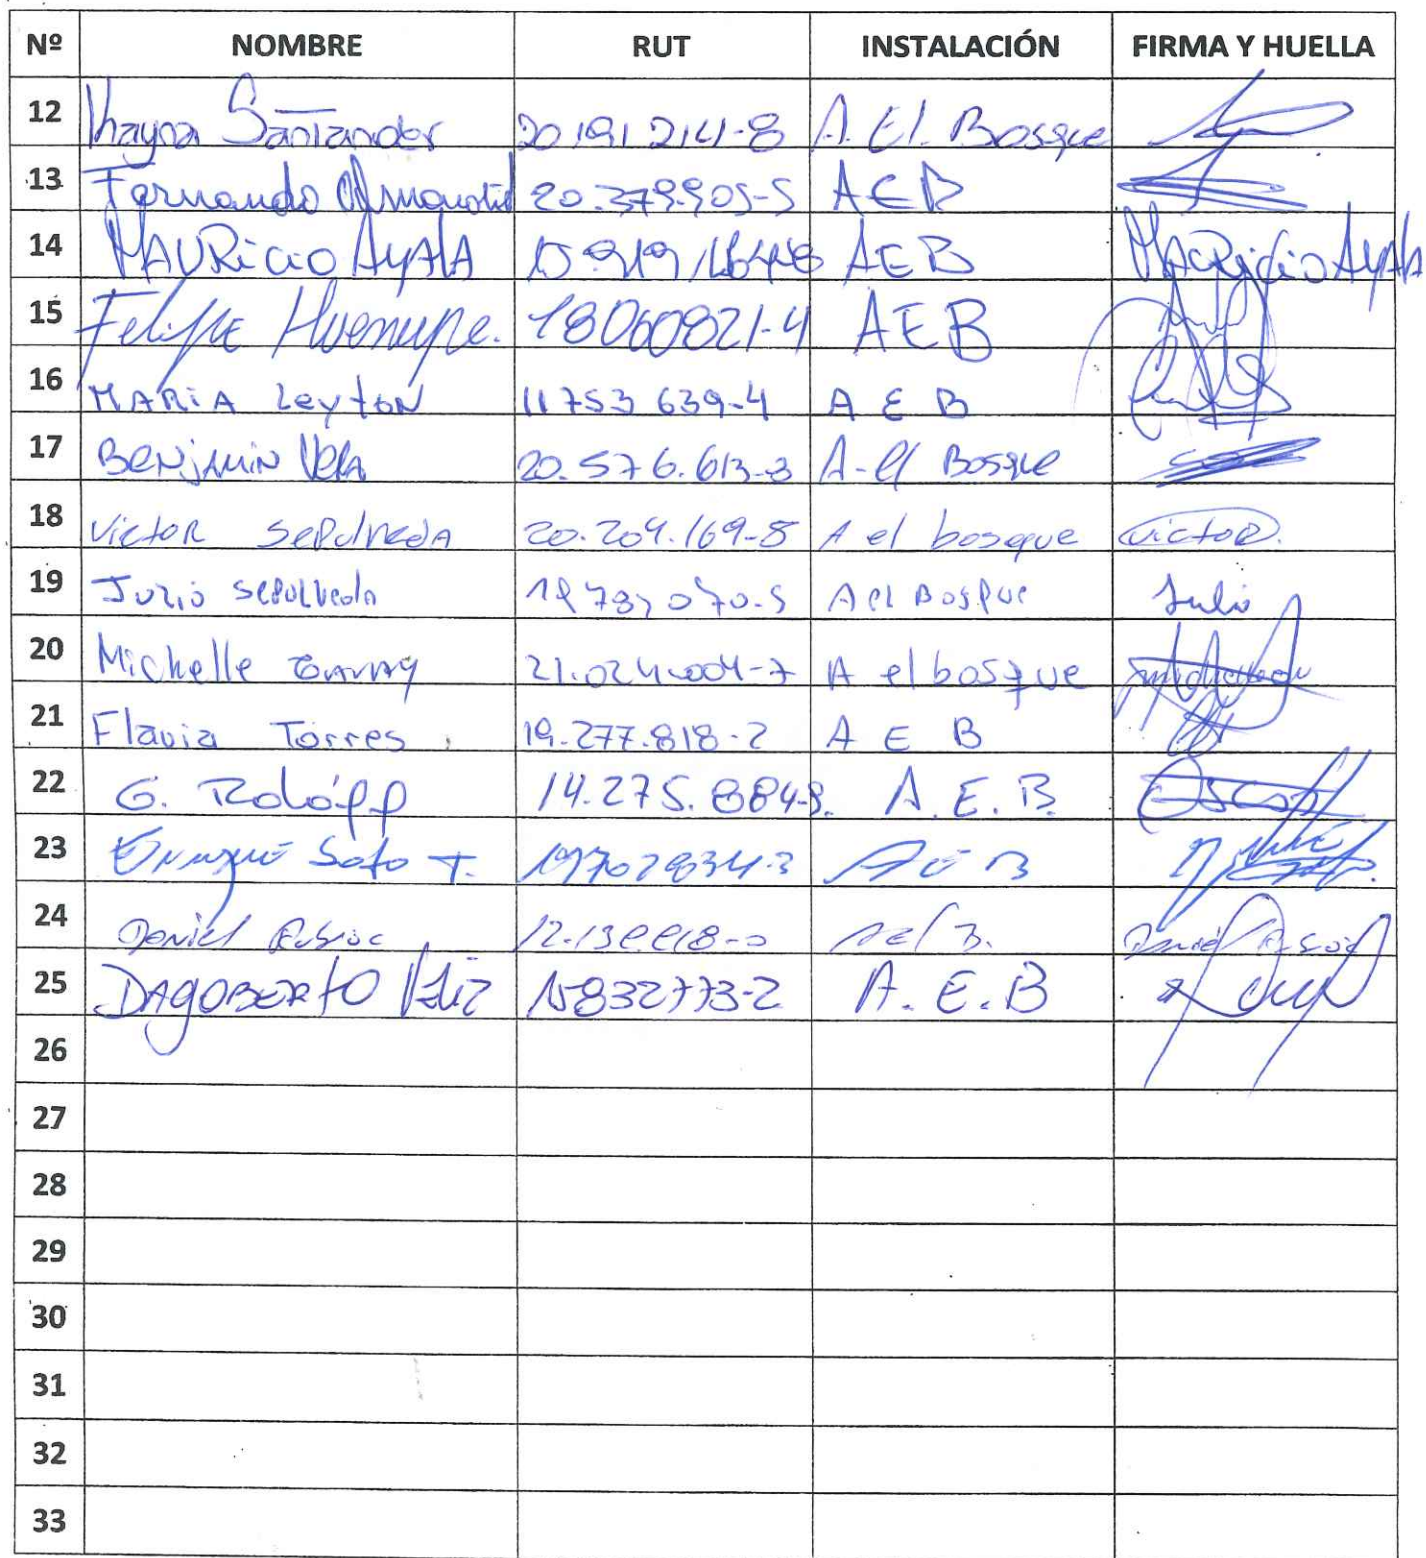 Nº NOMBRE RUT INSTALACIÓN FIRMA Y HUELLA
12 Thayna Santander 20191214-8 A. El. Bosque
13 Fernando 20.379.905-5 AEB
14 MAURicio AyALA AEB MAURicio AyALA
15 Felipe Huenupe. 18060821-4 AEB
16 MARIA Leyton 11753 639-4 A E B
17 BENJAMIN Vera 20.576.613-3 A-El Bosque
18 Victor Sepulveda 20.204.169-5 A el bosque Victor.
19 Julio Sepulveda A el Bosque Julio
20 Michelle 21.024.004-7 A el bosque
21 Flavia Torres 19.277.818-2 A E B
22 G. 14.275.884-8. A. E. B.
23 Enrique Soto T. AEB
24 Daniel A el B. Daniel
25 DAGOBERTO Veliz 15832773-2 A. E. B
26
27
28
29
30
31
32
33